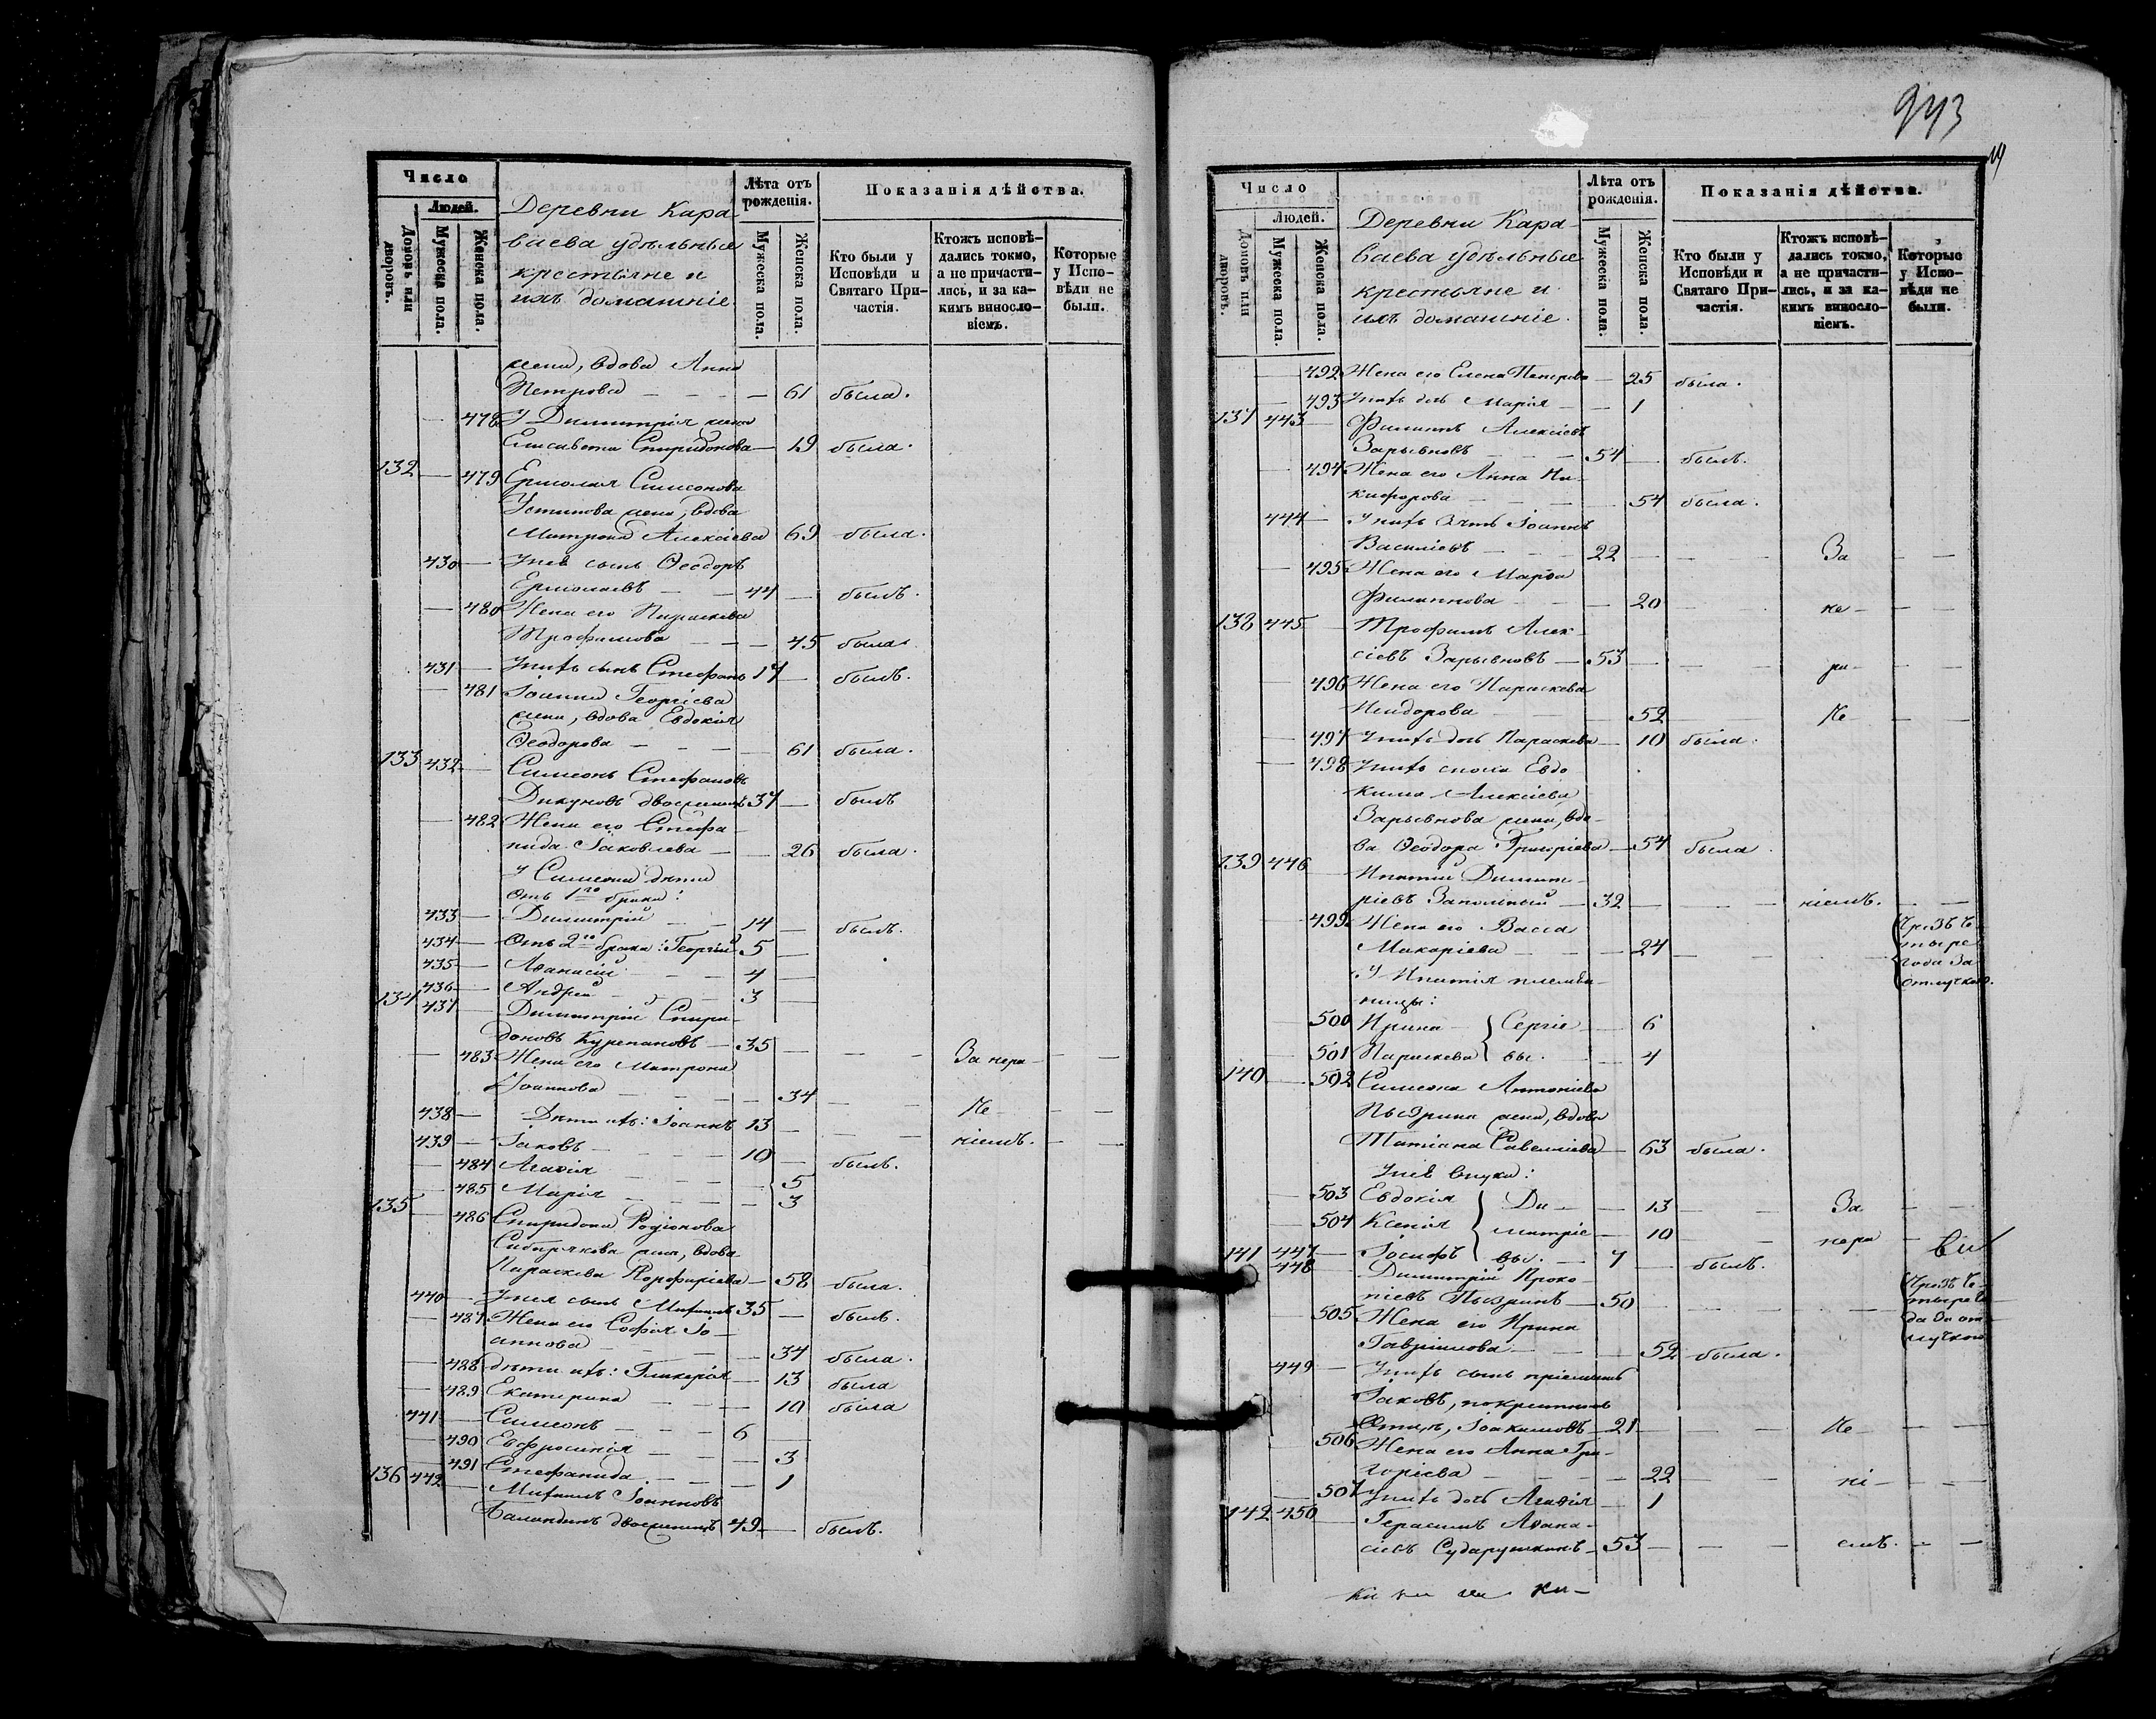 Число
Людей.
Домовъ или дворовъ.
Мужеска пола.
Женска пола.
Деревни Кара
ваева удѣльные
крестьяне и
ихъ домашніе.
Лѣта отъ рожденія.
Мужеска пола.
Женска пола.
Показанія дѣйства.
Кто были у Исповѣди и Святаго Причастія.
Ктожъ исповѣдались токмо, а не причастились, и за какимъ винословіемъ.
Которые у Исповѣди не были.
жена, вдова Анна
Петрова — — — 61 была.
478 У Димитрія жена
Елисавета Спиридонова — 19 была.
132 — 479 Ермолая Симеонова
Устинова жена, вдова
Матрона Алексіева 69 была.
430 — Унея сынъ Ѳеодоръ
Ермолаевъ — — 44 — былъ.
— 480 Жена его Параскева
Трофимова — — — 45 была.
431 — Унихъ сынъ Стефанъ 17 — былъ.
— 481 Іоанна Георгіева
жена, вдова Евдокія
Ѳеодорова — — — 61 была.
133 432 — Симеонъ Стефановъ
Дикуновъ двоеженецъ 37 — былъ
— 482 Жена его Стефа-
нида Іаковлева — — 26 была.
У Симеона дѣти
отъ 1го брака:
433 — Димитрій — — 14 — былъ.
434 — Отъ 2го брака: Георгій 5 —
435 — Аѳанасій — — — 4 —
436 — Андрей — — — 3 —
134 437 — Димитрій Спири-
доновъ Курепановъ — 35 — — — За нера — — —
— 483 Жена его Матрона
Іоаннова — — — — 34 — — Не — — —
438 — Дѣти ихъ: Іоаннъ 13 — — — ніемъ. — —
439 — Іаковъ — — — — 10 — былъ.
— 484 Агаѳія — — — — 5
— 485 Марія — — — — 3
135 — 486 Спиридона Родіонова
Сибирякова жена, вдова
Параскева Порфиріева — 58 была.
440 — Унея сынъ Михаилъ 35 — былъ.
— 487 Жена его Софія Іо-
аннова — — — — 34 была.
— 488 дѣти ихъ: Гликерія — 13 была
— 489 Екатерина — — — 10 была
441 — Симеонъ — — — 6 —
— 490 Евфросинія — — — 3
— 491 Стефанида — — — 1
136 442 — Михаилъ Іоанновъ
Баландинъ двоеженецъ 49 — былъ.
943
19
Число
Людей.
Домовъ или дворовъ.
Мужеска пола.
Женска пола.
Деревни Кара-
ваева удѣльные
крестьяне и
ихъ домашніе.
Лѣта отъ рожденія.
Мужеска пола.
Женска пола.
Показанія дѣйства.
Кто были у Исповѣди и Святаго Причастія.
Ктожъ исповѣдались токмо, а не причастились, и за какимъ винословіемъ.
Которые у Исповѣди не были.
— 492 Жена его Елена Петрова — 25 была.
— 493 Унихъ дочь Марія — — 1
137 443 — Филиппъ Алексіевъ
Зарывновъ — — — 54 — былъ.
— 494 Жена его Анна Ни-
кифорова — — — 54 была.
444 — Унихъ зять Іоаннъ
Василіевъ — — — 22 — — За — —
— 495 Жена его Марѳа
Филиппова — — — 20 — — не — — —
138 445 Трофимъ Алек-
сіевъ Зарывновъ — 53 — — — ра — — —
— 496 Жена его Параскева
Исидорова — — — 52 — — Не — — —
— 497 Унихъ дочь Параскева — 10 была.
— 498 Унихъ сноха Евдо-
кима Алексіева
Зарывнова жена, вдо-
ва Ѳеодора Григоріева — 54 была.
139 446 Ипатій Димит-
ріевъ Запольный — 32 — — — ніемъ. — —
— 499 Жена его Васса
Макаріева — — — 24 — — — Чрезъ че-
тыре
года за
отлучкою.
У Ипатія племян-
ницы:
— 500 Ирина — } Сергіе — — 6
— 501 Параскева } вы. — — 4
140 — 502 Симеона Антоніева
Пыѳрина жена, вдова
Татіана Савеліева — 63 была.
Унея внуки:
— 503 Евдокія } Ди — — 13 — За — —
— 504 Ксенія } митріе — 10 — — нера —
141 447 — Іосифъ } вы. — 7 — былъ.
448 — Димитрій Проко-
піевъ Пыѳринъ — 50 — — — — Чрезъ че-
тыре го-
да за от-
лучкою
— 505 Жена его Ирина
Гавріилова — — 52 была.
449 — Унихъ сынъ пріемышъ
Іаковъ, по крестному
Отцу, Іоакимовъ — 21 — — — Не — — —
506 Жена его Анна Гри-
горіева — — — — 22 — — ні — — —
— 507 Унихъ дочь Агаѳія — 1
142 450 — Герасимъ Аѳана-
сіевъ Сударушкинъ — 53 — — — емъ. — —